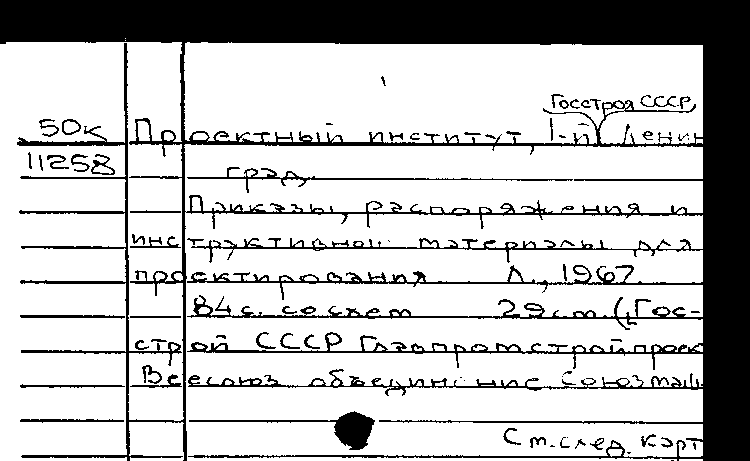 Госстроя СССР,
50к Проектный институт, 1-й Ленин
11258 град.
Приказы, распоряжения и
инструктивной материалы для
проектирования Л., 1967.
84 с. со схем 29 см. (Гос-
строй СССР Главпромстройпроек
Всесоюз объединение Союзмаш
См. след. карт